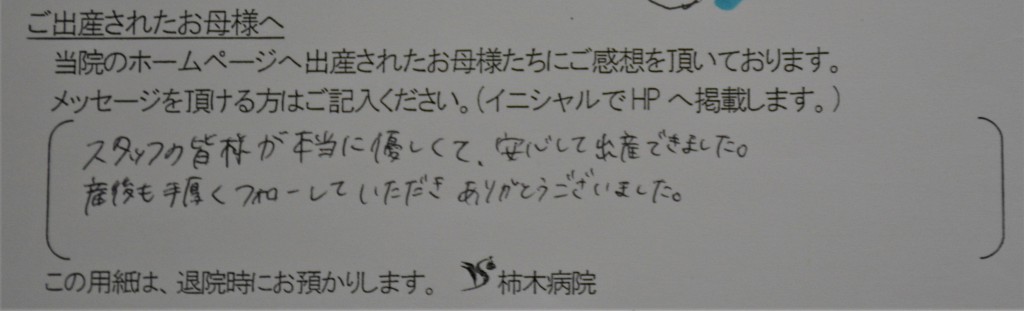 ご出産されたお母様へ
当院のホームページへ出産されたお母様たちにご感想を頂いております。
メッセージを頂ける方はご記入ください。(イニシャルでHPへ掲載します。)
スタッフの皆様が本当に優しくて、安心して出産できました。
産後も手厚くフォローしていただきありがとうございました。
この用紙は、退院時にお預かりします。 柿木病院